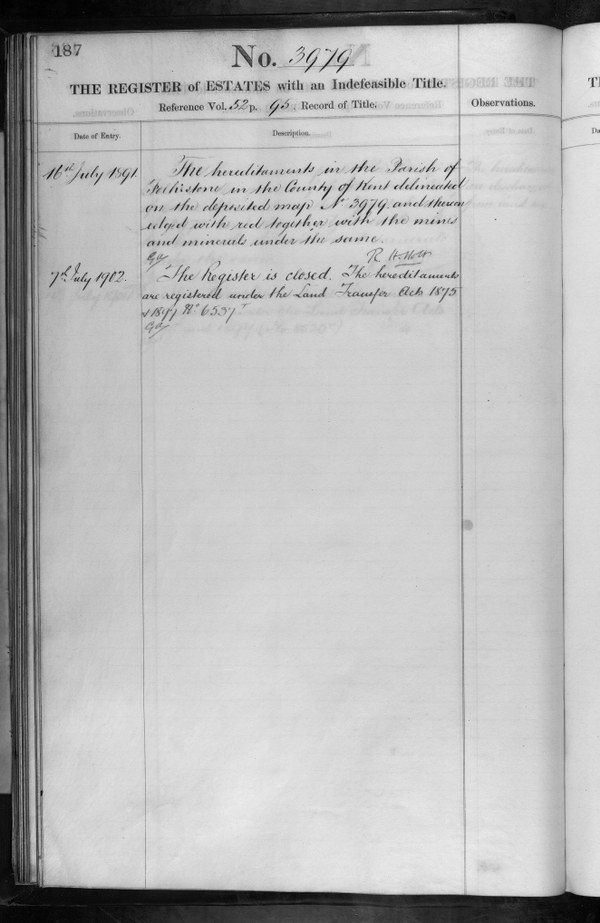 187
No. 3979
THE REGISTER of ESTATES with an Indefeasible Title.
Reference Vol. 52 p. 95 Record of Title.
Observations.
Date of Entry.
Description.
16th July 1891.
The hereditaments in the Parish of
in the County of Kent delineated
on the deposited map No 3979 and thereon
edged with red together with the mines
and minerals under the same.
7th July 1902.
The Register is closed. The hereditaments
are registered under the Land Transfer Acts 1875
& 1897 No 6537